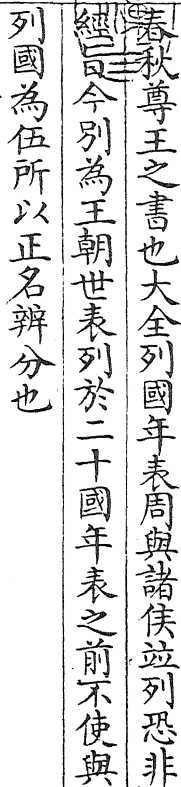 春秋尊王之書也大全列國年表周與諸侯竝列恐非
經旨今別為王朝世表列於二十國年表之前不使與
列國為伍所以正名辨分也